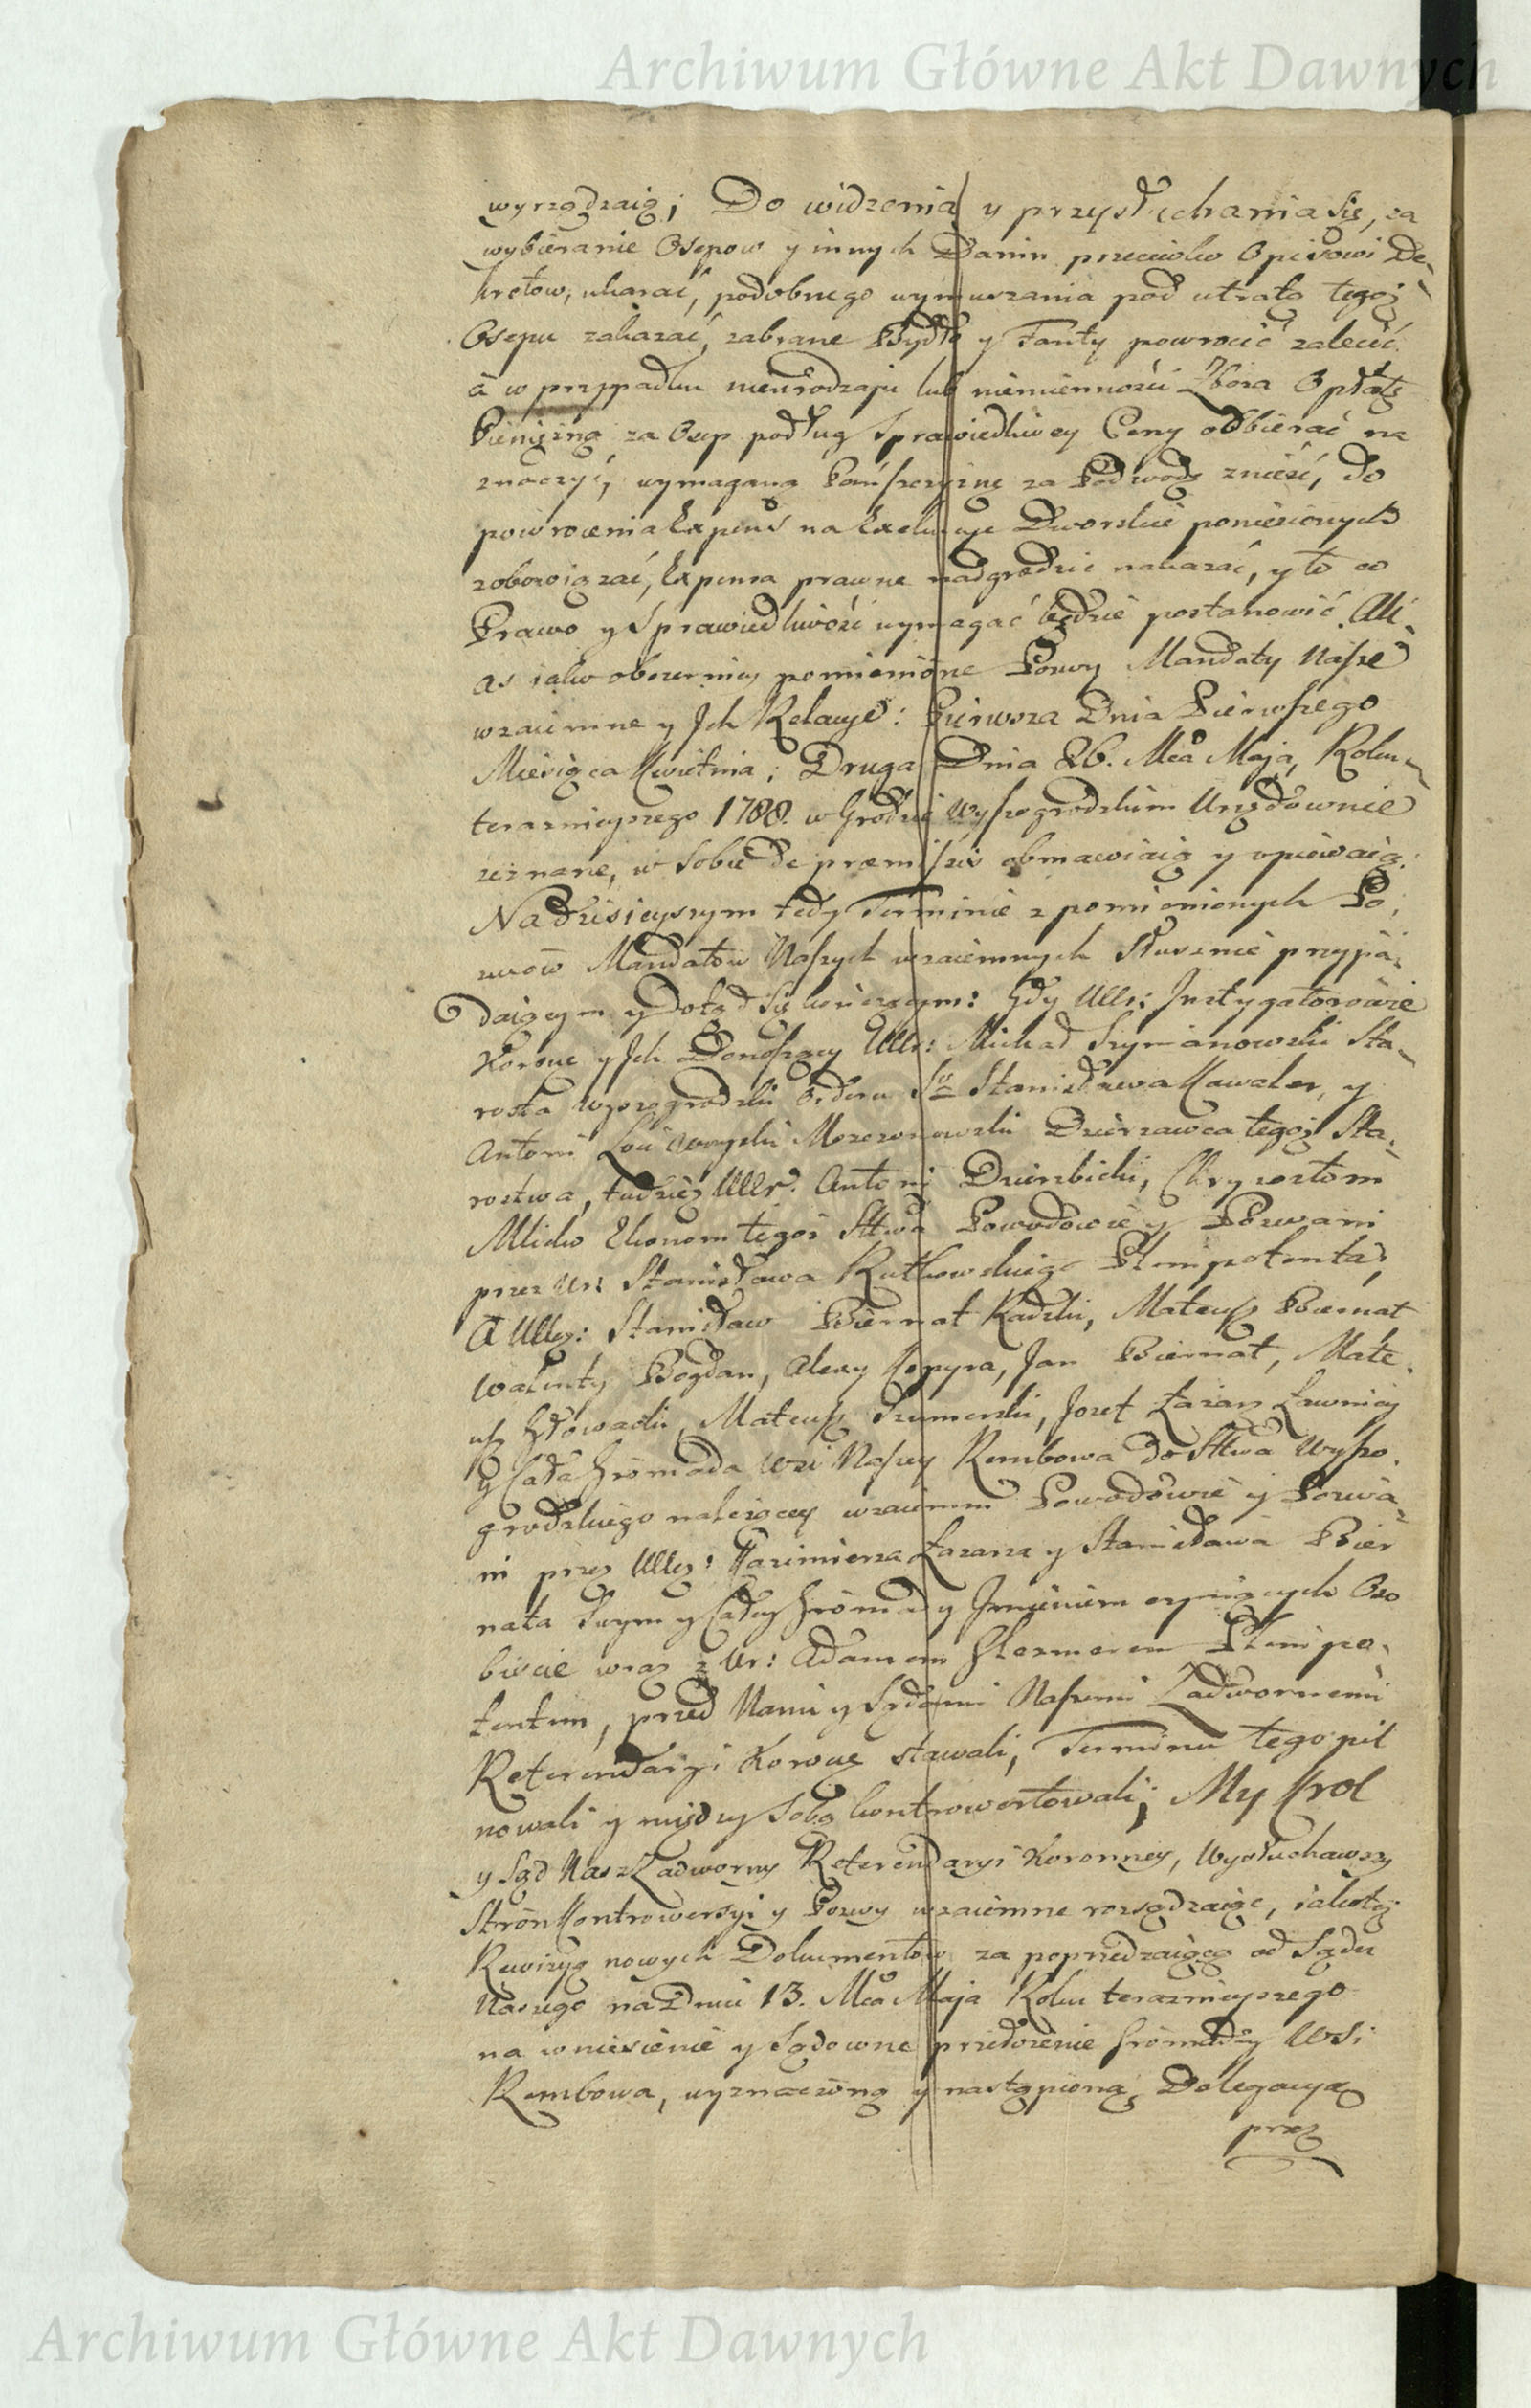 Archiwum Główne Akt Dawnych
wyrządzaią; Do widzenia y przysłuchania się, za
wybieranie Osepow y innych Danin przeciwko Opisowi De-
kretow, ukarać, podobnego wymuszania pod utratą tegoż
Osepu zakazać, zabrane Bydło y Fanty powrocić zalecić
a w przypadku nieurodzaju lub Zboża Opłatę
Pieniężną za Osep podług Sprawiedliwey Ceny odbierać na
znaczyć, wymaganą Pańszczyznę za Podwody znieść, do
powrocenia Expens na Exekucye Dworskie poniesionych
zobowiązać, Expensa prawne nadgrodzić nakazać, y to co
Prawo y Sprawiedliwość wymagać będzie postanowić. Ali-
as iako obszerniey pomienione Pozwy Mandaty Nasze
wzaiemne y Ich Relacye: Pierwsza Dnia Pierwszego
Miesiąca Kwietnia; Druga Dnia 26. Mca Maja, Roku
teraznieyszego 1788. w Grodzie Wyszogrodzkim Urzędownie
zeznane, w Sobie de præmissis obmawiaią y opiewaią.
Na dzisieyszym tedy Terminie z pomienionych Po-
zwow Mandatow Naszych wzaiemnych Słusznie przypa-
daiącym y dotąd się kończącym: Gdy UUr: Instygatorowie
Koronę y Ich Donoszący UUr: Michał Szymanowski Sta-
rosta Wyszogrodzki Orderu Sgo Stanisława Kawaler, y
Antoni Moszczonowski Dzierzawca tegoż Sta-
rostwa, tudzież UUr. Antoni Dzierzbicki, Chryzostom
Mlicko Ekonom tegoż Sttwa Powodowie y Pozwani
przez Ur: Stanisława Rutkowskiego Plenipotenta,
A UUcz: Stanisław Biernat Radzki, Mateusz Biernat
Walenty Bogdan, Alexy Kopyra, Jan Biernat, Mate-
usz Głowacki, Mateusz Szumerski, Jozef Łazarz Ławnicy
y Cała Gromada Wsi Naszey Rembowa do Sttwa Wyszo-
grodzkiego należącey wzaiemni Powodowie y Pozwa-
ni przez UUcz: Kazimierza Łazarza y Stanisława Bier
nata Swym y Całey Gromady Imieniem czyniących Oso
biście wraz z Ur: Adamem Plenipo-
tentem, przed Nami y Sądami Naszemi Zadwornemi
Referendaryi Koronę stawali, Terminu tego pil
nowali y między Sobą kontrowertowali; My Krol
y Sąd Nasz Zadworny Referendaryi Koronney, Wysłuchawszy
Stron Kontrowersyi y Pozwy wzaiemne rozsądzaiąc, iakoteż
Rewizyą nowych Dokumentow za poprzedzaiącą od Sądu
Naszego na Dniu 13. Mca Maja Roku teraznieyszego
na wniesienie y Sądowne przełożenie Gromady Wsi
Rembowa, wyznaczoną y nastąpioną, Delegacyą
przez
Archiwum Główne Akt Dawnych